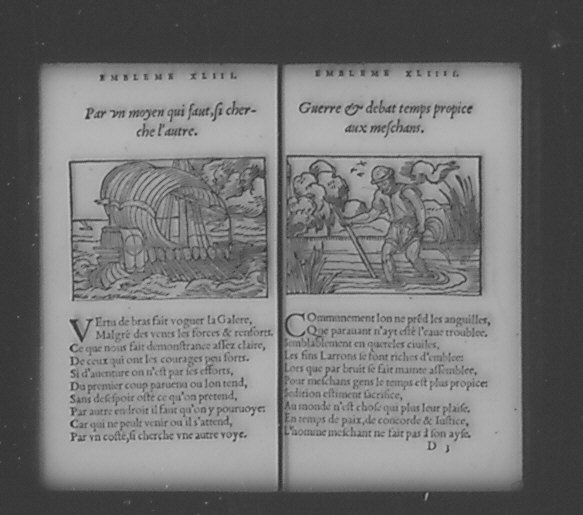 EMBLEME XLIII.
Par vn moyen qui faut, si cher-
che l'autre.
VErtu de bras fait voguer la Galere,
Malgré des vents les forces & renforts.
Ce que nous fait demonstrance assez claire,
De ceux qui ont les courages peu forts.
Si d'auenture on n'est par ses efforts,
Du premier coup paruenu ou lon tend,
Sans desespoir osté ce qu'on pretend,
Par autre endroit il faut qu'on y pouruoye:
Car qui ne peult venir ou il s'attend,
Par vn costé, si cherche vne autre voye.
EMBLEME XLIIII.
Guerre & debat temps propice
aux meschans.
COmmunement lon ne prēd les anguilles,
Que parauant n'ayt esté l'eaue troublee.
Semblablement en querelles ciuiles,
Les fins Larrons se font riches d'emblee:
Lors que par bruit se fait mainte assemblee,
Pour meschans gens le temps est plus propice:
Sedition estiment sacrifice,
Au monde n'est chose qui plus leur plaise.
En temps de paix, de concorde & Iustice,
L'homme meschant ne fait pas à son ayse.
D 3